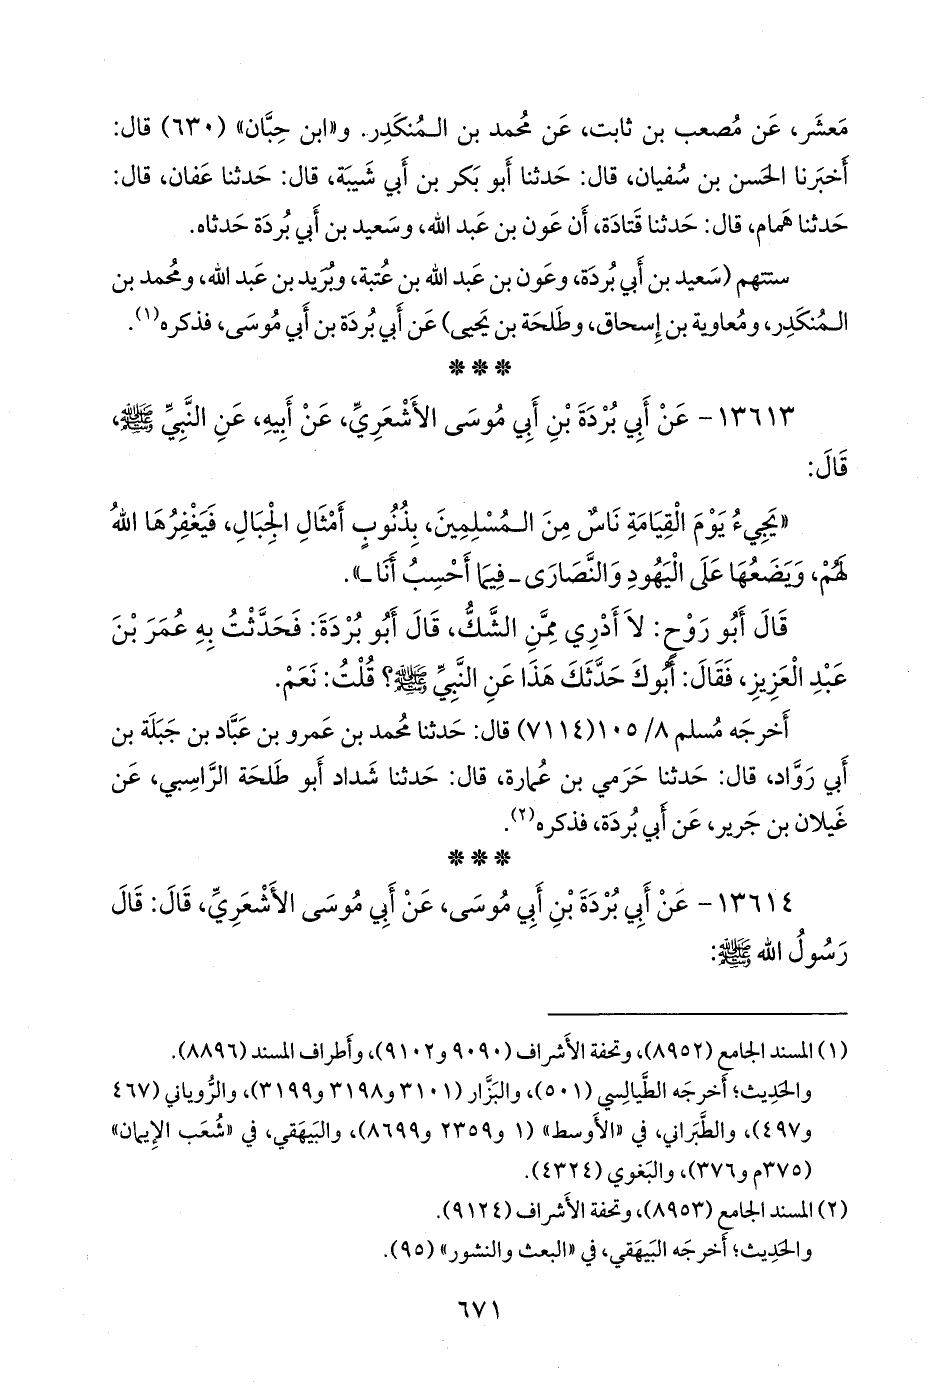 مَعشَر، عَن مُصعب بن ثابت، عَن مُحمد بن الـمُنكَدِر. و«ابن حِبَّان» (٦٣٠) قال:
أَخبَرنا الحَسن بن سُفيان، قال: حَدثنا أَبو بَكر بن أَبي شَيبَة، قال: حَدثنا عَفان، قال:
حَدثنا هَمام، قال: حَدثنا قَتادَة، أَن عَون بن عَبد الله، وسَعيد بن أَبي بُردَة حَدثاه.
ستتهم (سَعيد بن أَبي بُردَة، وعَون بن عَبد الله بن عُتبة، وبُرَيد بن عَبد الله، ومُحمد بن
الـمُنكَدِر، ومُعاوية بن إِسحاق، وطَلحَة بن يَحيى) عَن أَبي بُردَة بن أَبي مُوسَى، فذكره(١).
* * *
١٣٦١٣- عَنْ أَبِي بُرْدَةَ بْنِ أَبِي مُوسَى الأَشْعَرِيِّ، عَنْ أَبِيهِ، عَنِ النَّبِيِّ ﷺ،
قَالَ:
«يَجِيءُ يَوْمَ الْقِيَامَةِ نَاسٌ مِنَ الـمُسْلِمِينَ، بِذُنُوبٍ أَمْثَالِ الْجِبَالِ، فَيَغْفِرُهَا اللهُ
لَهُمْ، وَيَضَعُهَا عَلَى الْيَهُودِ وَالنَّصَارَى ـ فِيمَا أَحْسِبُ أَنَا ـ».
قَالَ أَبُو رَوْحٍ: لاَ أَدْرِي مِمَّنِ الشَّكُّ، قَالَ أَبُو بُرْدَةَ: فَحَدَّثْتُ بِهِ عُمَرَ بْنَ
عَبْدِ الْعَزِيزِ، فَقَالَ: أَبُوكَ حَدَّثَكَ هَذَا عَنِ النَّبِيِّ ﷺ؟ قُلْتُ: نَعَمْ.
أَخرجَه مُسلم ٨/ ١٠٥(٧١١٤) قال: حَدثنا مُحمد بن عَمرو بن عَبَّاد بن جَبَلَة بن
أَبي رَوَّاد، قال: حَدثنا حَرَمي بن عُمارة، قال: حَدثنا شَداد أَبو طَلحَة الرَّاسِبي، عَن
غَيلان بن جَرير، عَن أَبي بُردَة، فذكره(٢).
* * *
١٣٦١٤- عَنْ أَبِي بُرْدَةَ بْنِ أَبِي مُوسَى، عَنْ أَبِي مُوسَى الأَشْعَرِيِّ، قَالَ: قَالَ
رَسُولُ الله ﷺ:
(١) المسند الجامع (٨٩٥٢)، وتحفة الأَشراف (٩٠٩٠ و٩١٠٢)، وأَطراف المسند (٨٨٩٦).
والحَدِيث؛ أَخرجَه الطَّيالِسي (٥٠١)، والبَزَّار (٣١٠١ و٣١٩٨ و٣١٩٩)، والرُّوياني (٤٦٧
و٤٩٧)، والطَّبَراني، في «الأَوسط» (١ و٢٣٥٩ و٨٦٩٩)، والبَيهَقي، في «شُعَب الإِيمان»
(٣٧٥م و٣٧٦)، والبَغوي (٤٣٢٤).
(٢) المسند الجامع (٨٩٥٣)، وتحفة الأَشراف (٩١٢٤).
والحَدِيث؛ أَخرجَه البَيهَقي، في «البعث والنشور» (٩٥).
٦٧١